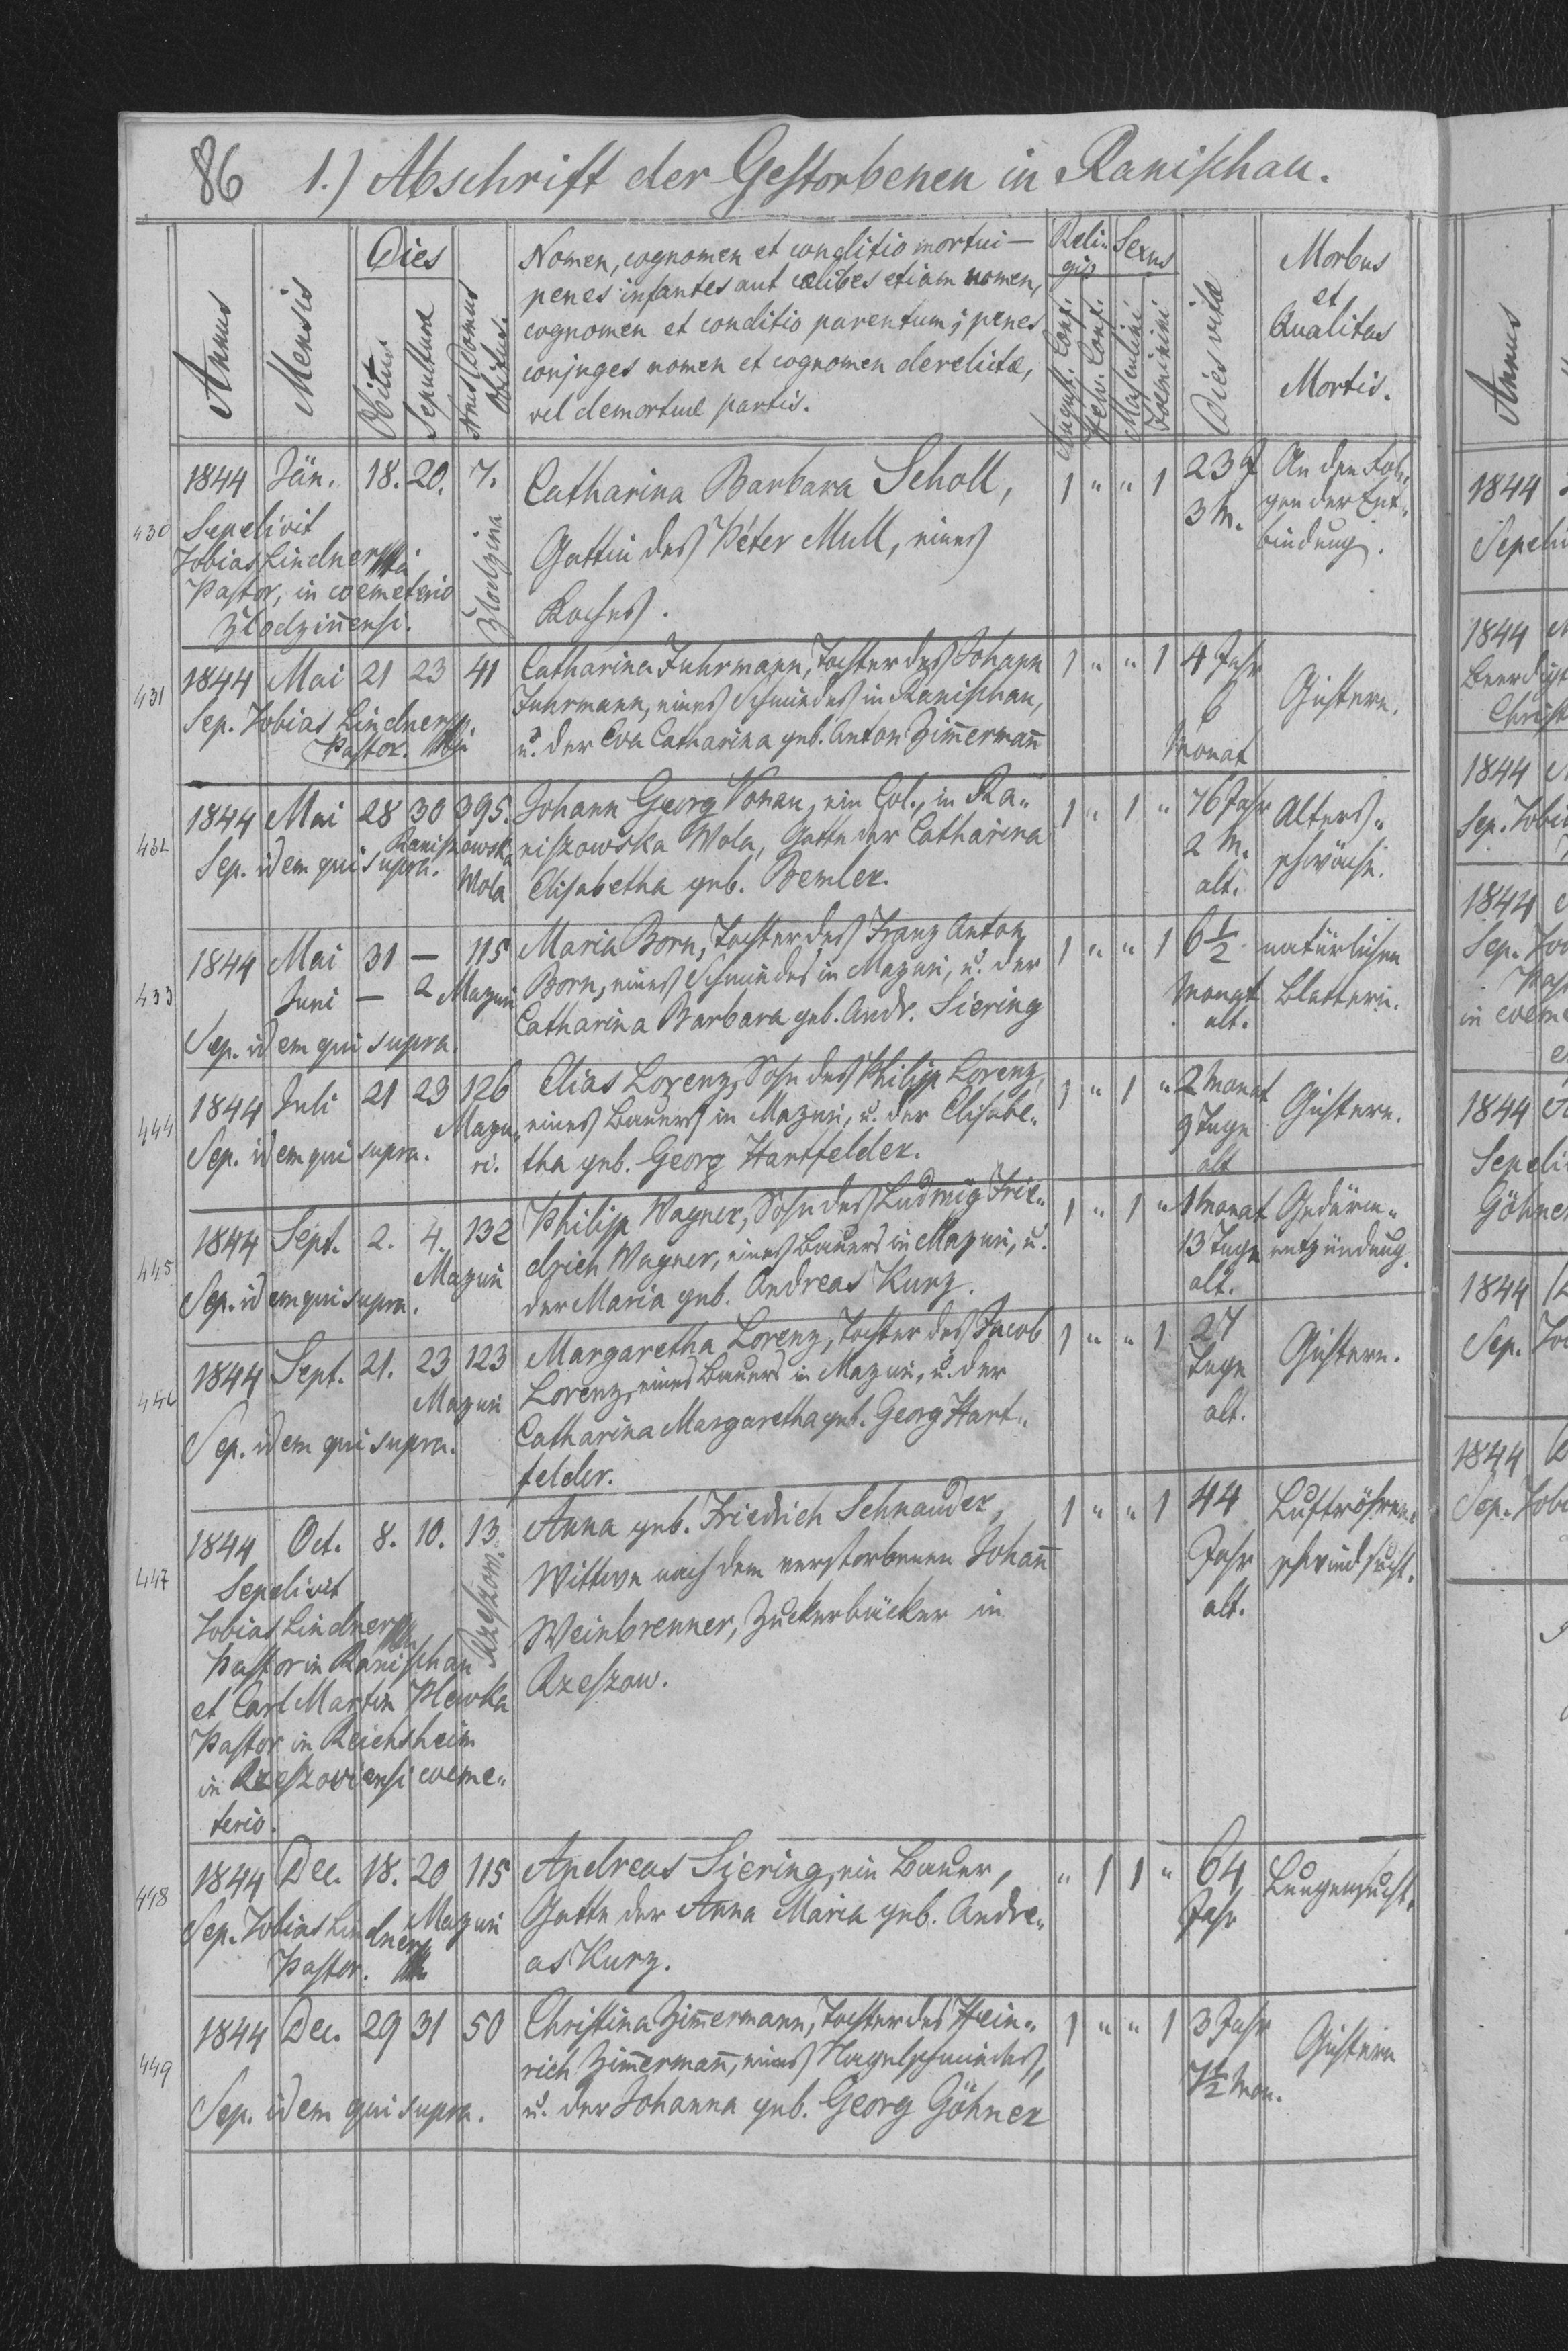 86 1.) Abschrift der Gestorbenen in Ranischau.
Annus
Mensis
Dies
Obitus
Sepulturae
Nrus Domus
Obitus.
Nomen, cognomen et conditio mortui —
penes infantes aut caelibes etiam nomen,
cognomen et conditio parentum; penes
conjuges nomen et cognomen derelictae,
vel demortuae partis.
Reli„
gio
August. Conf.
Helv. Conf.
Sexus
Masculini
Foeminini
Dies vitae
Morbus
et
Qualitas
Mortis.
430
1844 Jän. 18. 20. 7. Catharina Barbara Scholl, 1 „ „ 1 23 J An den Fol„
Sepelivit 3 M. gen der Ent„
Tobias Lindner Gattin des Péter Mull, eines bindung.
Pastor, in coemeterio
Zlodzinensi. Zlodzina Koches.
431
1844 Mai 21 23 41 Catharina Fuhrmann, Tochter des Johann 1 „ „ 1 4 Jahr
Fuhrmann, eines Schmiedes in Ranischau, 6 Gichtern.
Sep. Tobias Lindner
Pastor. u. der Eva Catharina geb. Anton Zimmermann Monat
432
1844 Mai 28 30 395. Johann Georg Vonau, ein Col., in Ra„ 1 „ 1 „ 76 Jahr Alters„
Raniszowska niszowska Wola, Gatte der Catharina 2 M. schwäche.
Sep. idem qui supra. Wola Elisabetha geb. Bemler. alt.
433
1844 Mai 31 — 115 Maria Born, Tochter des Franz Anton 1 „ „ 1 6½ natürlichen
Juni — 2 Mazuri Born, eines Schmiedes in Mazuri, u. der Monat Blattern.
Sep. idem qui supra. Catharina Barbara geb. Andr. Siering alt.
444
1844 Juli 21 23 126 Elias Lorenz, Sohn des Philipp Lorenz, 1 „ 1 „ 2 Monat Gichtern.
Mazu„ eines Bauers in Mazuri, u. der Elisabe„ 9 Tage
Sep. idem qui supra. ri. tha geb. Georg Hartfelder. alt
445
1844 Sept. 2. 4. 132 Philipp Wagner, Sohn des Ludwig Frie„ 1 „ 1 „ 1 Monat Gedärm„
Mazuri drich Wagner, eines Bauers in Mazuri, u. 13 Tage entzündung.
Sep. idem qui supra. der Maria geb. Andreas Kurz. alt.
446
1844 Sept. 21. 23 123 Margaretha Lorenz, Tochter des Jacob 1 „ „ 1 27 Gichtern.
Mazuri Lorenz, eines Bauers in Mazuri, u. der Tage
Sep. idem qui supra. Catharina Margaretha geb. Georg Hart„ alt.
felder.
447
1844 Oct. 8. 10. 13. Anna geb. Friedrich Schnauder, 1 „ „ 1 44 Luftröhren„
Sepelivit Rzeszow. Wittwe nach dem verstorbenen Johann Jahr schwindsucht.
Tobias Lindner alt.
Pastor in Ranischau Weinbrenner, Zuckerbäcker in
et Carl Martin Plewka Rzeszow.
Pastor in Reichsheim
in Rzeszoviensi coeme„
terio.
448
1844 Dec. 18. 20 115 Andreas Siering, ein Bauer, „ 1 1 „ 64 Lungensucht.
Sep. Tobias Lindner Mazuri Gatte der Anna Maria geb. Andre„ Jahr
Pastor. as Kurz.
449
1844 Dec. 29 31 50 Christina Zimmermann, Tochter des Hein„ 1 „ „ 1 3 Jahr Gichtern
rich Zimmermann, eines Nagelschmiedes, 7½ Mon.
Sep. idem qui supra. u. der Johanna geb. Georg Göhner
Annus
1844
1844
1844
1844
1844
Göhner
1844
1844